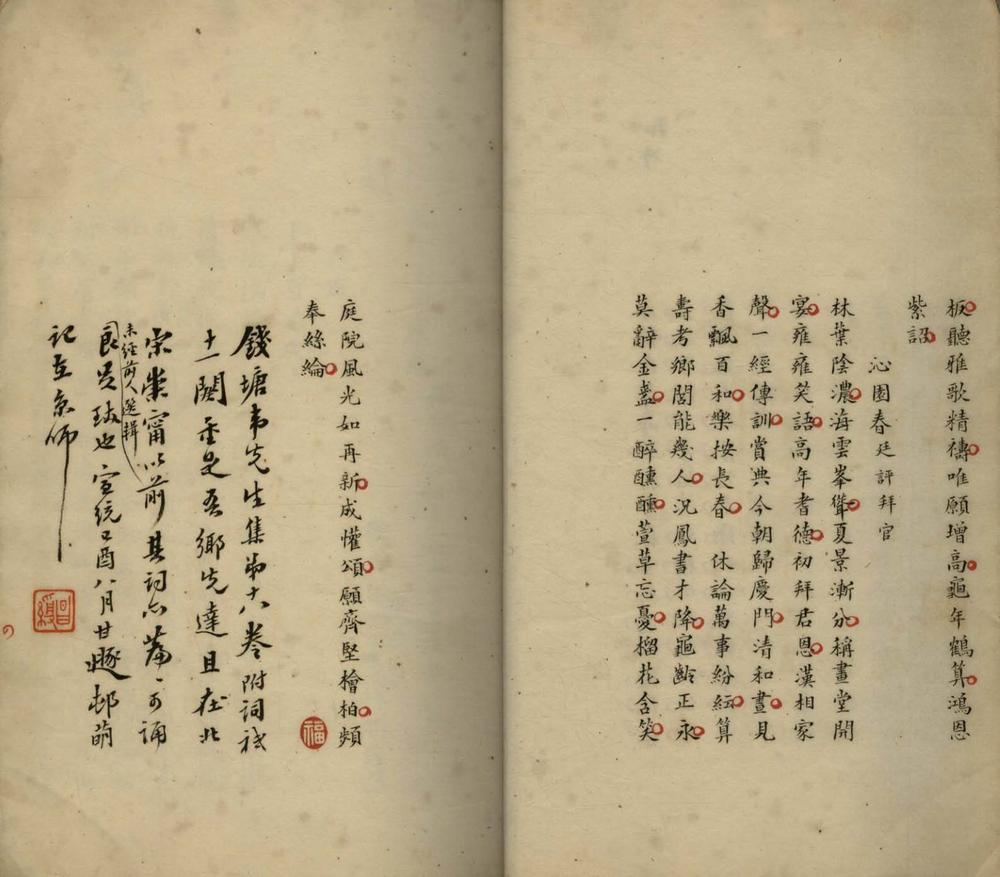 板聽雅歌精禱唯願增高龜年鶴算鴻恩
紫詔
沁園春廷評拜官
林葉陰濃海雲峯聳夏景漸分稱畫堂開
宴雍雍笑語高年耆德初拜君恩漢相家
聲一經傳訓賞典今朝歸慶門清和晝見
香飄百和樂按長春 休論萬事紛紜算
壽考鄉閭能幾人況鳳書才降龜齡正永
莫辭金盞一醉醺醺萱草忘憂榴花含笑
庭院風光如再新成懽頌願齊堅檜柏頻
奉絲綸
福
錢塘韋先生集第十八卷附詞祇
十一闋重是吾鄉先達且在北
宋崇甯以前其詞亦篇篇可誦
未經前人選輯
良足珍也宣統己酉八月甘遯邨萌
記在京師